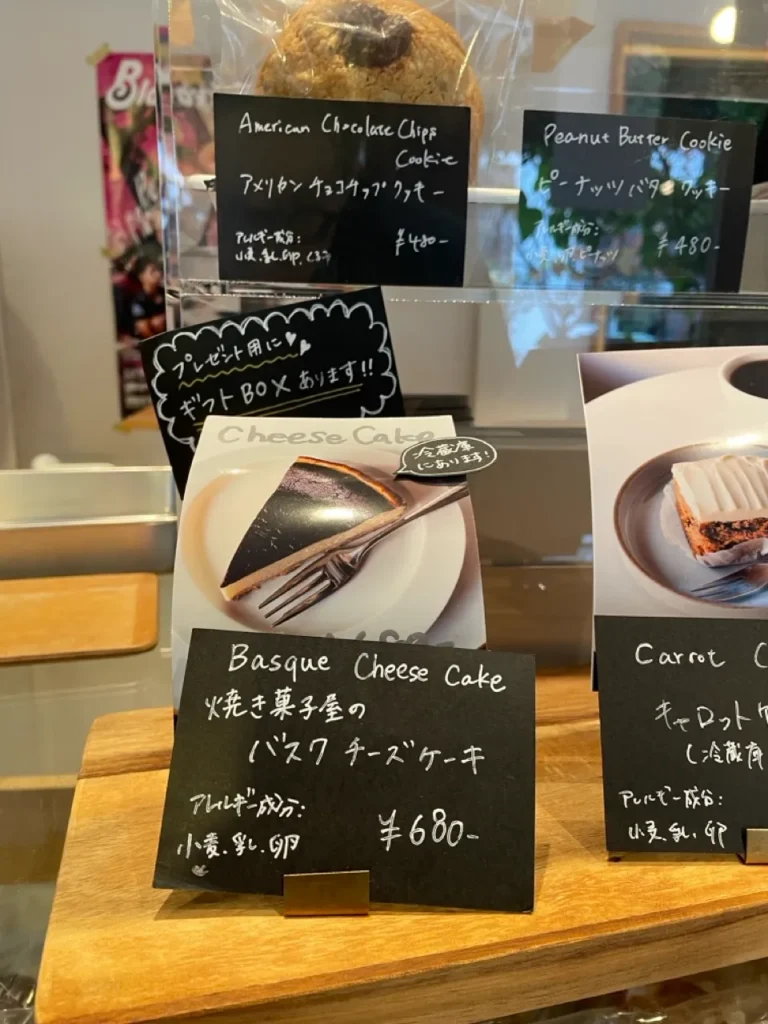 American Chocolate Chips
Cookie
アメリカン チョコチップ クッキー
アレルギー成分:
小麦、乳、卵、くるみ
¥480-
Peanut Butter Cookie
ピーナッツ バター クッキー
アレルギー成分:
小麦、乳、卵、ピーナッツ
¥480-
プレゼント用に
ギフトBOXあります!!
Cheese Cake
冷蔵庫
にあります!
Basque Cheese Cake
焼き菓子屋の
バスク チーズケーキ
アレルギー成分:
小麦、乳、卵
¥680-
Carrot C
キャロット
(冷蔵庫
アレルギー成分:
小麦、乳、卵